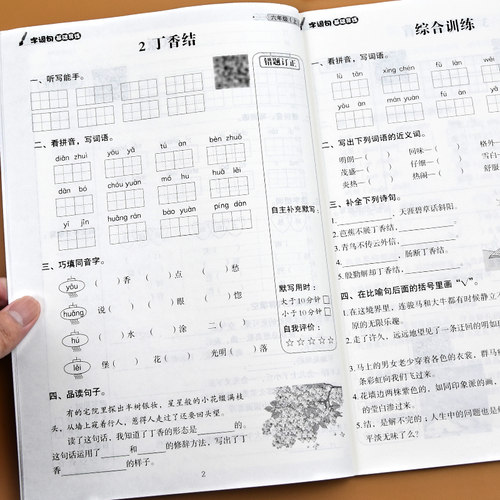 字词句 基础背练
2 丁香结
一、听写能手。
二、看拼音，写词语。
diǎn zhuì yōu yǎ tú bèn zhuō
dàn bó chóu yuàn mó hu huā lěi
yī jīn huǎng rán bào yuàn píng dàn
三、巧填同音字。
yōu （ ）香 （ ）点 （ ）愁
huǎng 说（ ） （ ）眼 （ ）惚
hú （ ）水 （ ）涂 二（ ）
lěi 堡（ ） 花（ ） 光明（ ）落
四、品读句子。
有的宅院里探出半树银妆，星星般的小花缀满枝
头，从墙上窥着行人，惹得人走过了还要回头望。
读了这句话，我知道了丁香的形态是________的。
这句话运用了______和______的修辞方法，写出了丁
香________的样子。
错题订正
自主补充默写：
默写用时：
大于10分钟
小于10分钟
自我评价：
☆☆☆☆☆
2
六年级（上）
字词句 基础背练
综合训练
一、看拼音，写词语。
xìng chén
yōu àn màn yuán fú àn
二、写出下列词语的近义词。
明朗—（ ） 回味—（ ） 格外—
茂盛—（ ） 仔细—（ ） 雪白—
炎热—（ ） 热闹—（ ） 舒服—
三、补全下列诗句。
1.________，天涯碧草话斜阳。
2.芭蕉不展丁香结，
3.青鸟不传云外信，
4.________，肠断丁香结。
5.殷勤解却丁香结，
四、在比喻句后面的括号里画“√”。
1.在这境界里，连骏马和大牛都有时候静立
原的无限乐趣。
2.走了许久，远远地望见了一条迂回的明如
3.马上的男女老少穿着各色的衣裳，群马
条彩虹向我们飞过来。
4.花墙边两株紫色的，如同印象派的画，
的莹白渗过来。
5.结，是解不完的；人生中的问题也是
平淡无味了么？